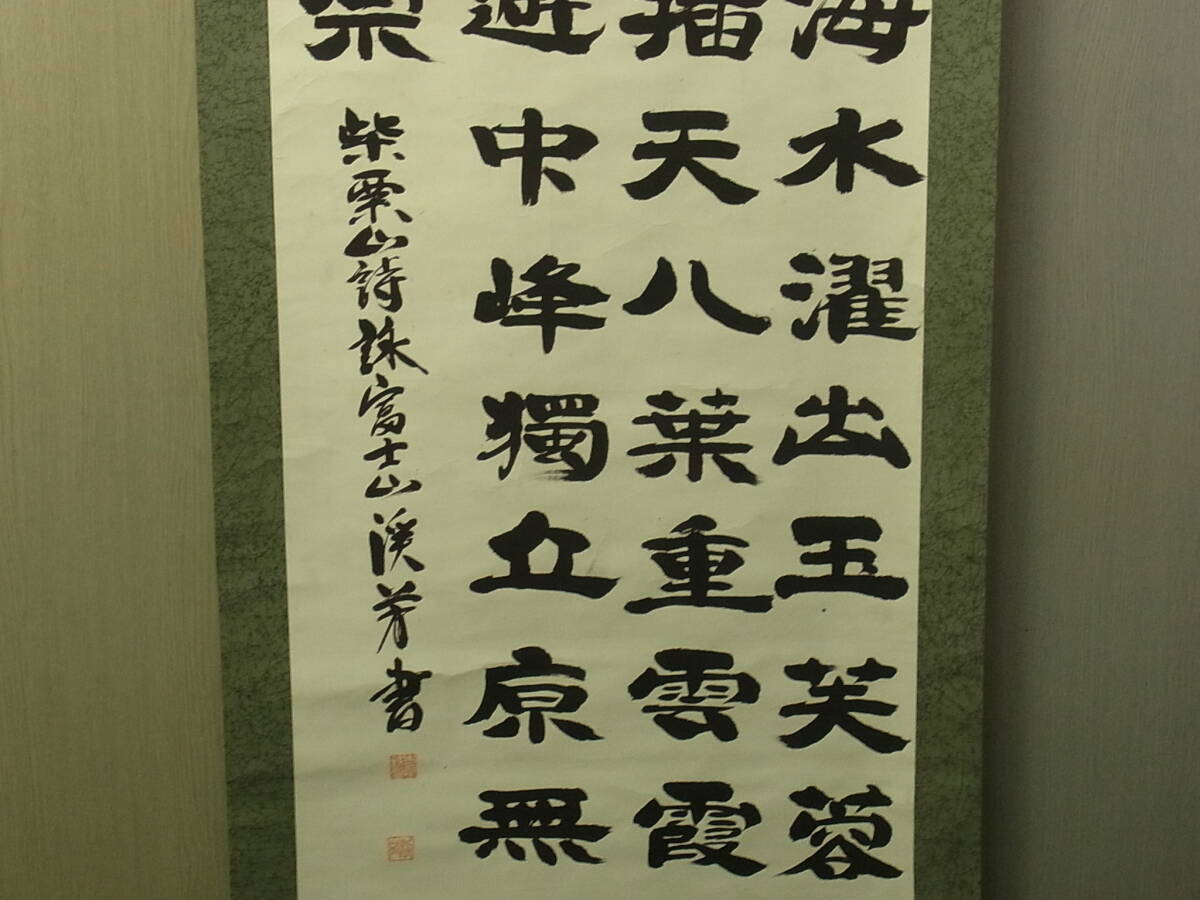 海水濯出玉芙蓉
插天八葉重雲霞
遊中峰獨立原無
柴栗山詩詠富士山 溪芳書